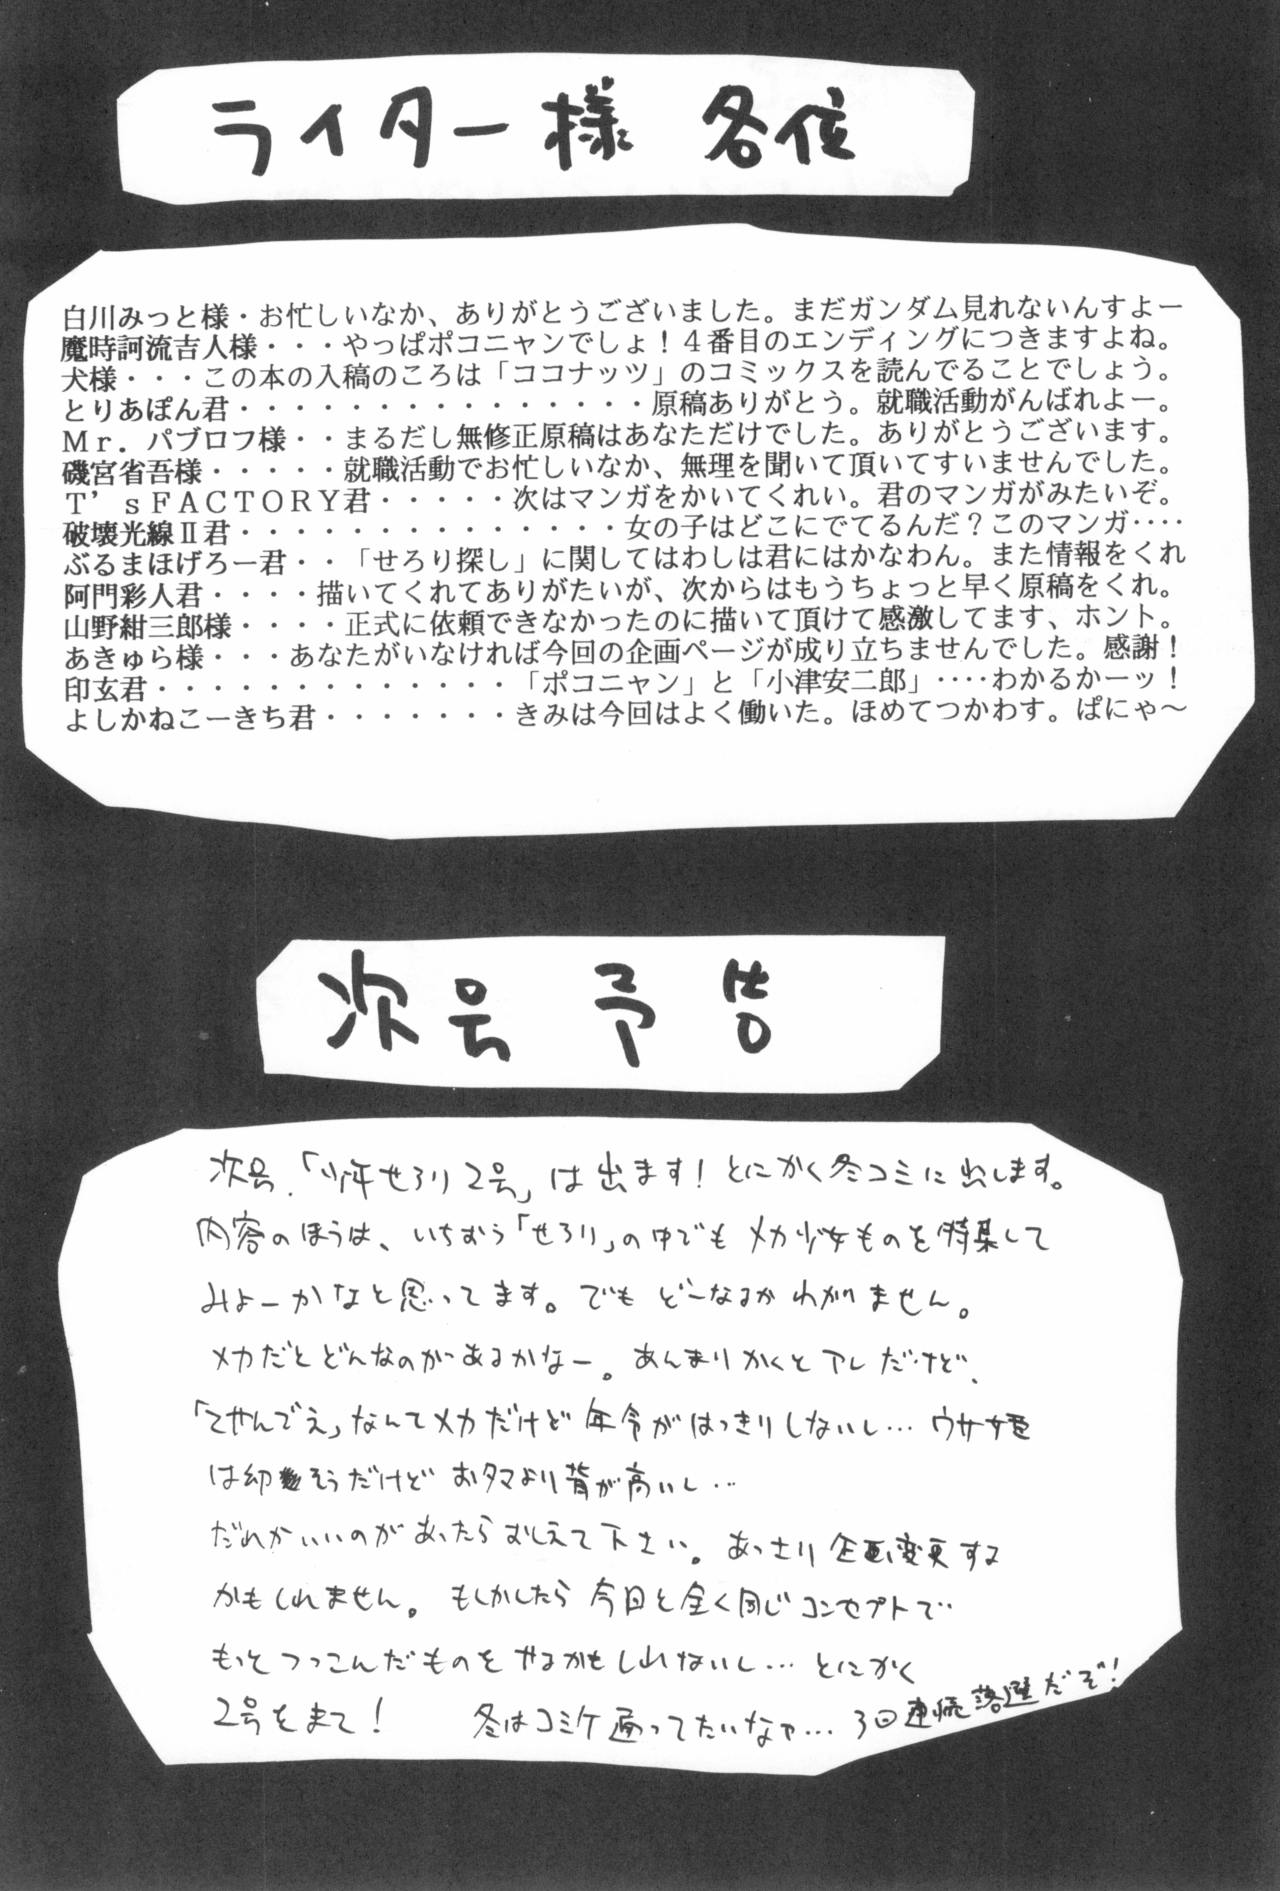 ライター様 各位
白川みっと様・お忙しいなか、ありがとうございました。まだガンダム見れないんすよー
魔時訶流吉人様・・・やっぱポコニャンでしょ！４番目のエンディングにつきますよね。
犬様・・・この本の入稿のころは「ココナッツ」のコミックスを読んでることでしょう。
とりあぽん君・・・・・・・・・・・・・・・原稿ありがとう。就職活動がんばれよー。
Ｍｒ．パブロフ様・・まるだし無修正原稿はあなただけでした。ありがとうございます。
磯宮省吾様・・・・・就職活動でお忙しいなか、無理を聞いて頂いてすいませんでした。
Ｔ’ｓＦＡＣＴＯＲＹ君・・・・・次はマンガをかいてくれい。君のマンガがみたいぞ。
破壊光線Ⅱ君・・・・・・・・・・・・・・女の子はどこにでてるんだ？このマンガ‥‥
ぶるまほげろー君・・「せろり探し」に関してはわしは君にはかなわん。また情報をくれ
阿門彩人君・・・・描いてくれてありがたいが、次からはもうちょっと早く原稿をくれ。
山野紺三郎様・・・・正式に依頼できなかったのに描いて頂けて感激してます、ホント。
あきゅら様・・・あなたがいなければ今回の企画ページが成り立ちませんでした。感謝！
印玄君・・・・・・・・・・・・・・「ポコニャン」と「小津安二郎」‥‥わかるかーッ！
よしかねこーきち君・・・・・・・きみは今回はよく働いた。ほめてつかわす。ぱにゃ～
次号 予告
次号、「少年せろり2号」は出ます！とにかく冬コミに出します。
内容のほうは、いちおう「せろり」の中でもメカ少女ものを特集して
みよーかなと思ってます。でもどーなるかわかりません。
メカだとどんなのがあるかなー。あんまりかくとアレだけど、
「てやんでえ」なんてメカだけど年令がはっきりしないし…ウサ姫
は幼そうだけどおタマより背が高いし…
だれかいいのがあったらおしえて下さい。あっさり企画変更する
かもしれません。もしかしたら今回と全く同じコンセプトで
もっとつっこんだものをやるかもしれないし…とにかく
2号をまて！ 冬はコミケ通ってたいなァ…3回連続落選だぞ！